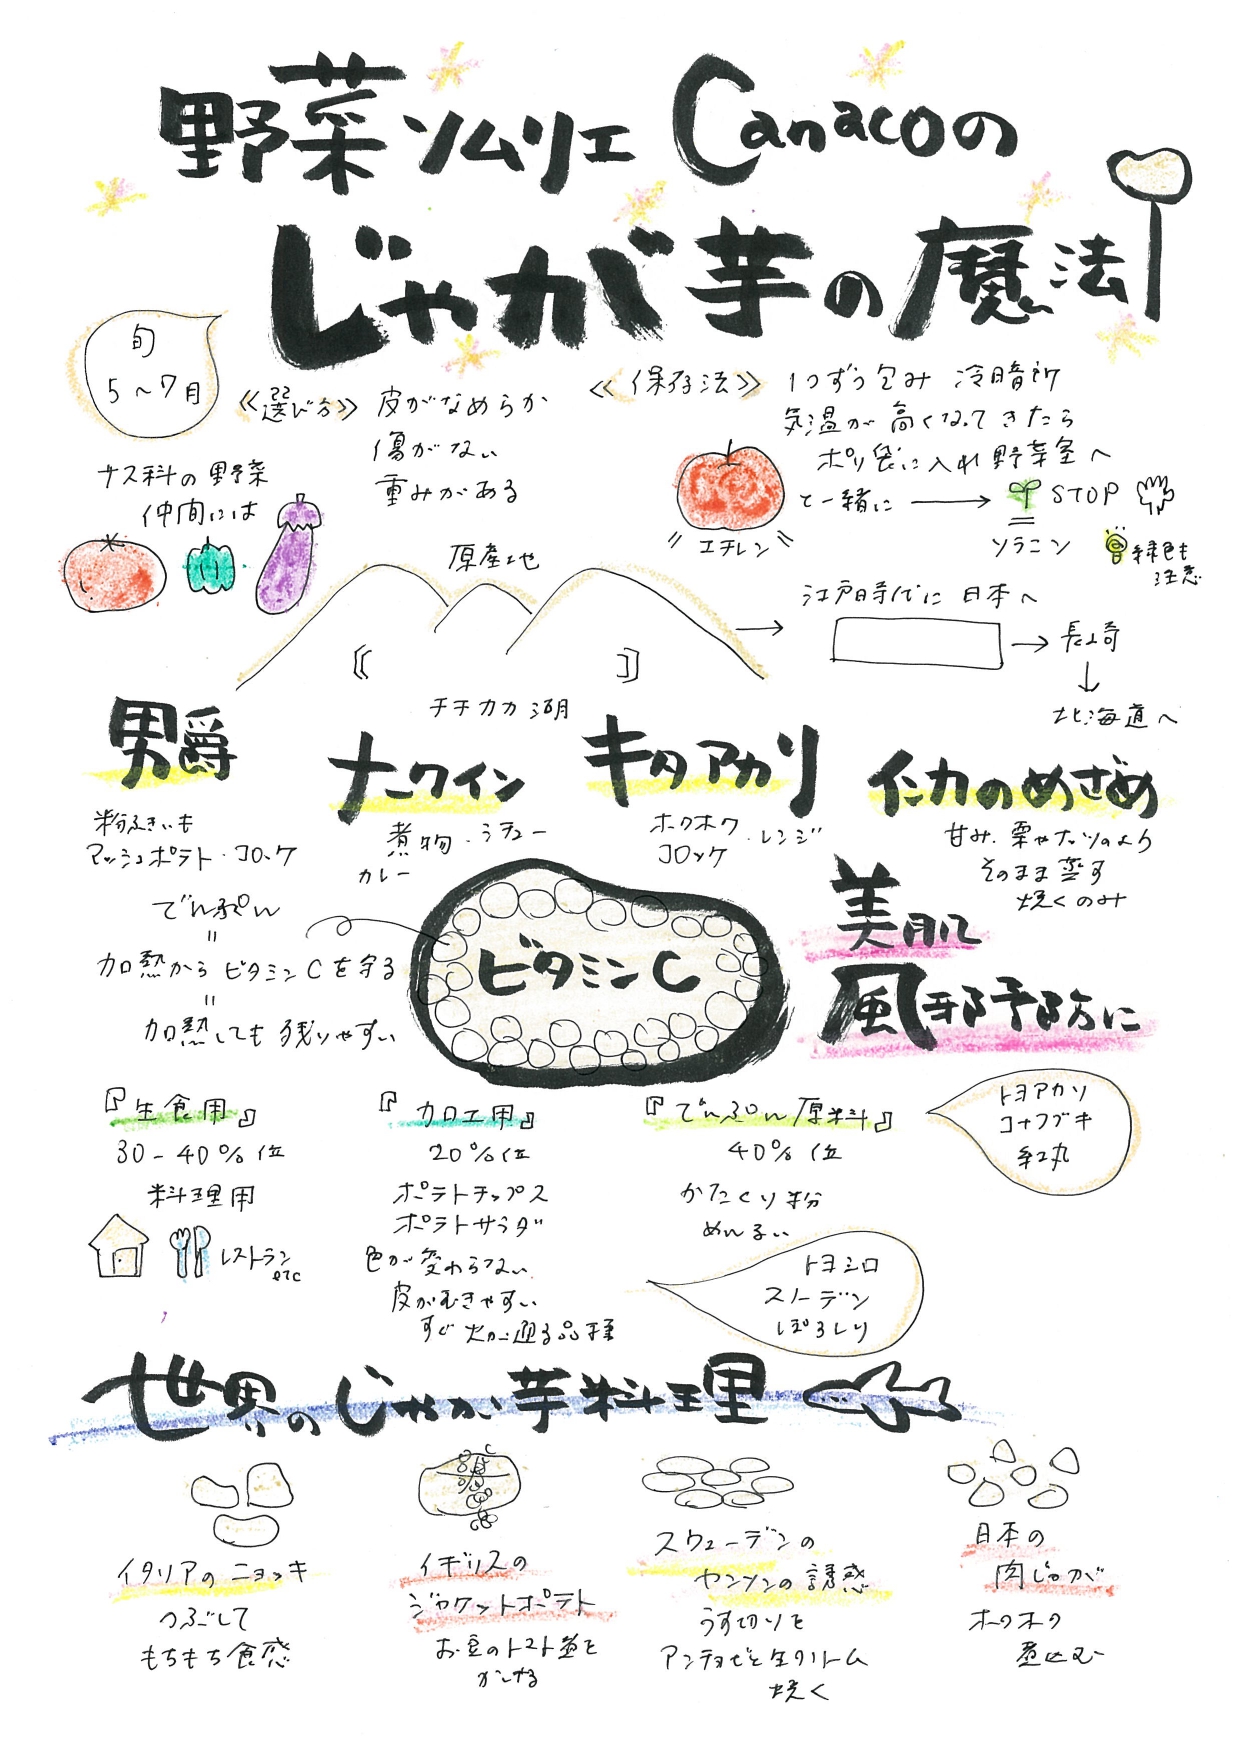 野菜ソムリエ Canacoの
じゃが芋の魔法
旬
5〜7月
≪選び方≫ 皮がなめらか
傷がない
重みがある
≪保存法≫ 1つずつ包み 冷暗所
気温が高くなってきたら
ポリ袋に入れ野菜室へ
と一緒に → STOP
エチレン
ソラニン
緑色も
注意
ナス科の野菜
仲間には
原産地
〘 〙
チチカカ湖
江戸時代に日本へ
→ 長崎
↓
北海道へ
男爵
粉ふきいも
マッシュポテト・コロッケ
メークイン
煮物・シチュー
カレー
キタアカリ
ホクホク・レンジ
コロッケ
インカのめざめ
甘み・栗やナッツのよう
そのまま蒸す
焼くのみ
でんぷん
=
加熱からビタミンCを守る
=
加熱しても残りやすい
ビタミンC
美肌
風邪予防に
『生食用』
30-40%位
料理用
レストラン
etc
『加工用』
20%位
ポテトチップス
ポテトサラダ
色が変わらない
皮がむきやすい
すぐ火が通る品種
『でんぷん原料』
40%位
かたくり粉
めんるい
トヨアカリ
コナフブキ
紅丸
トヨシロ
スノーデン
ぽろしり
世界のじゃが芋料理
イタリアのニョッキ
つぶして
もちもち食感
イギリスの
ジャケットポテト
お豆のトマト煮を
かける
スウェーデンの
ヤンソンの誘惑
うす切りを
アンチョビと生クリーム
焼く
日本の
肉じゃが
ホクホク
煮込む